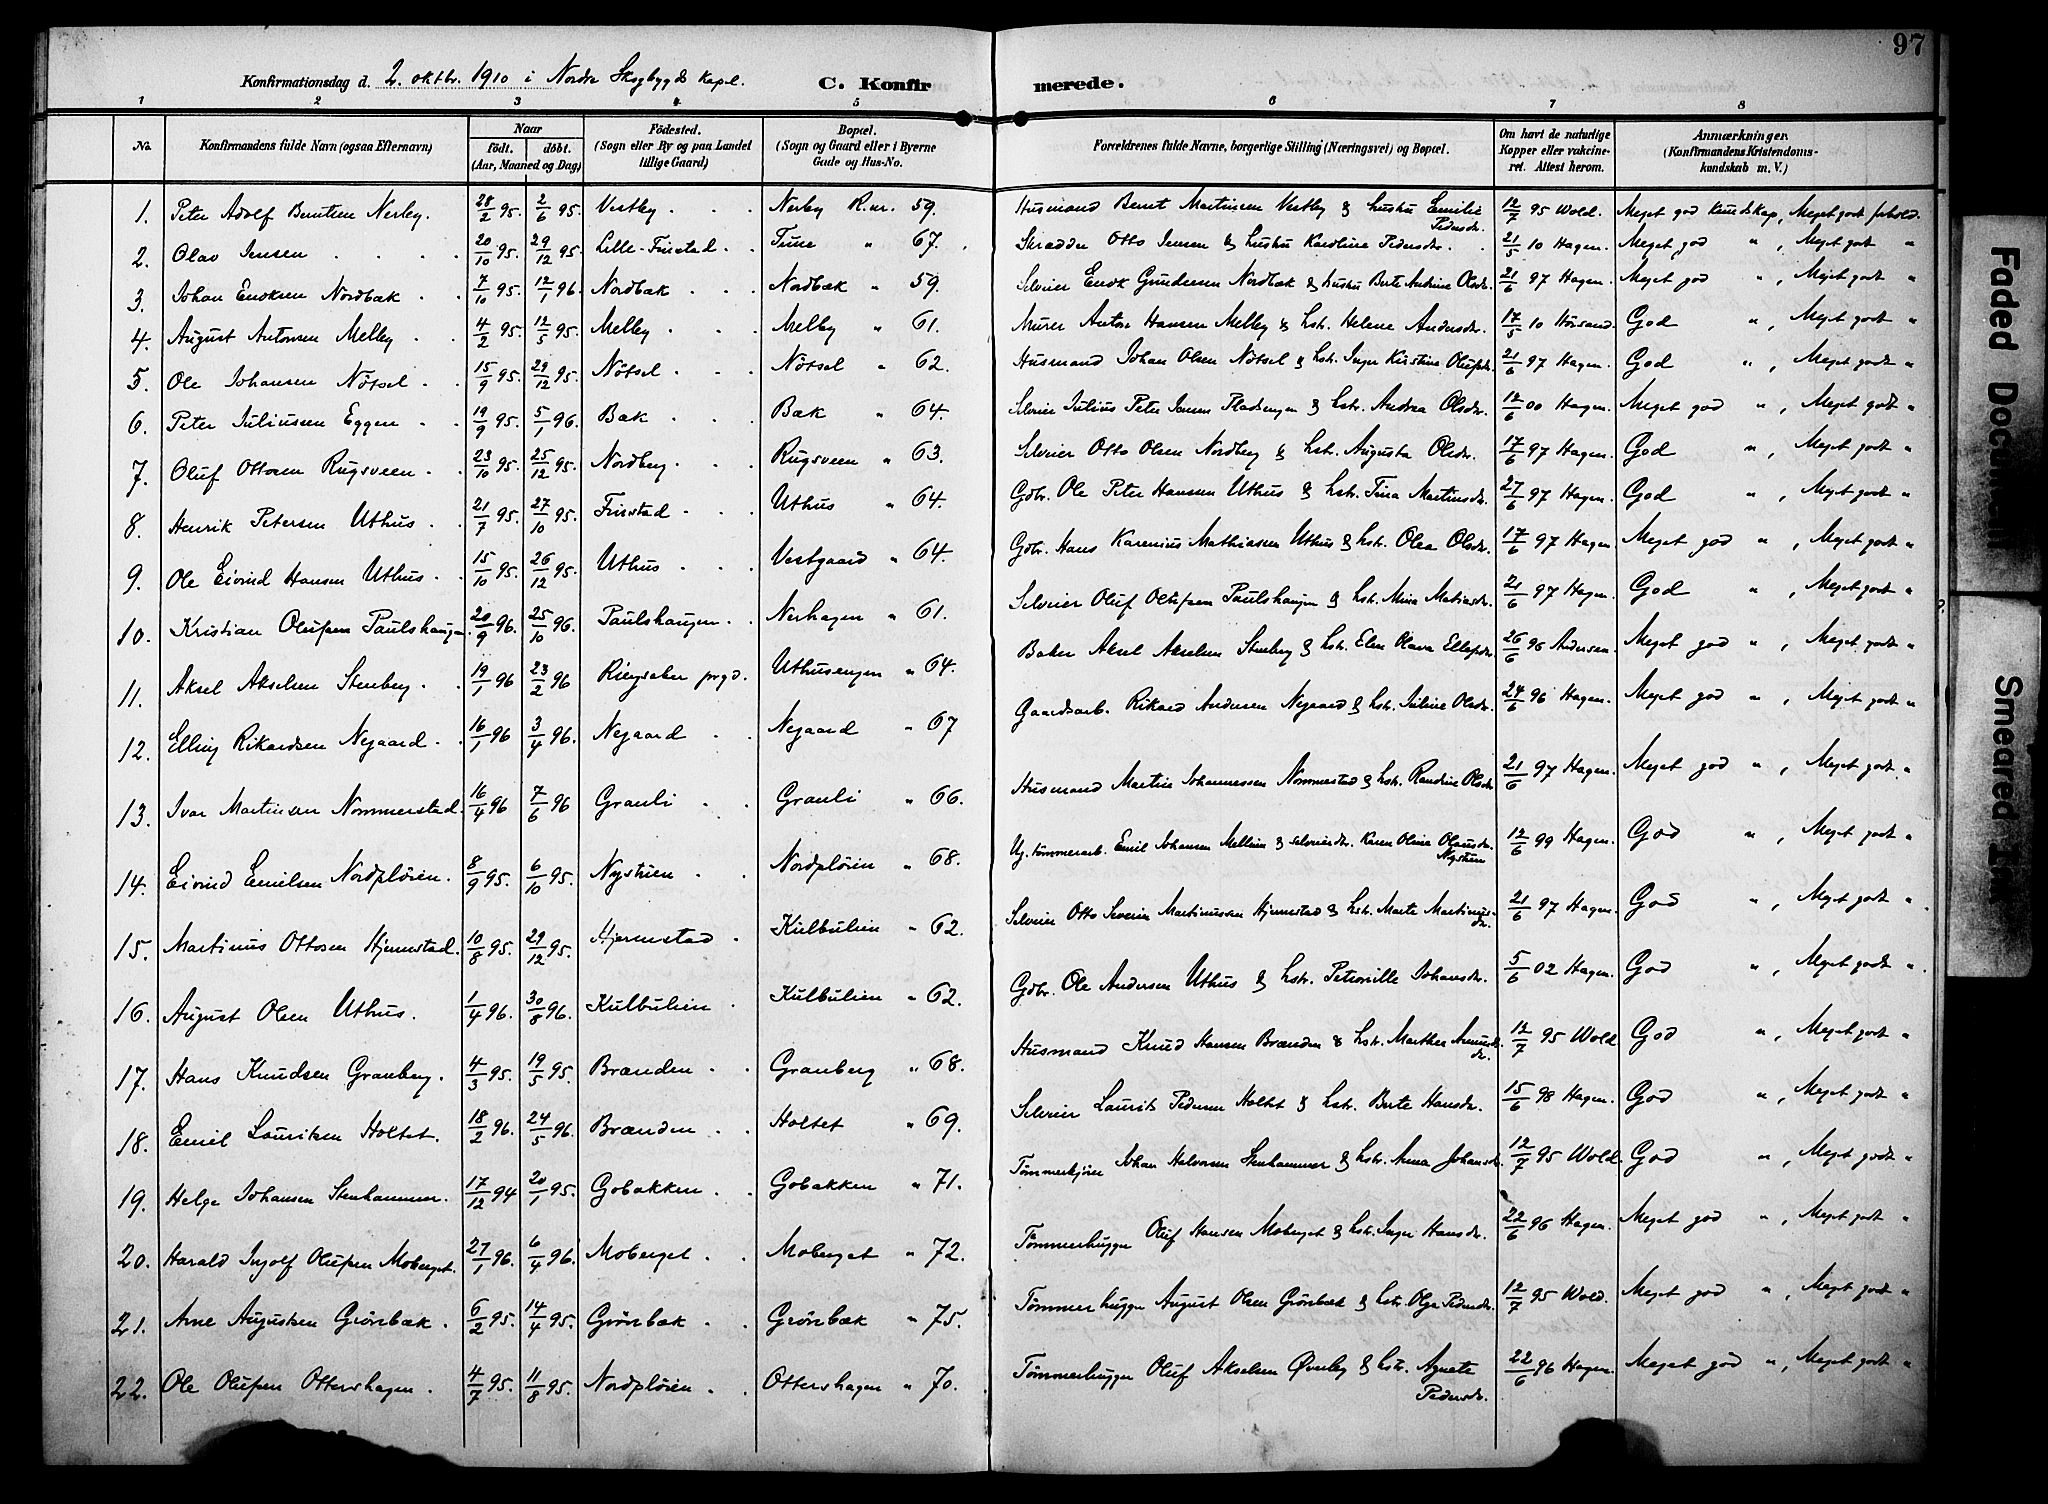 97
Konfirmationsdag d. 2. oktbr. 1910 i Nordre Skogbygds kapel. C. Konfirmerede.
1 2 3 4 5 6 7 8
No. Konfirmandens fulde Navn (ogsaa Efternavn) Naar födt. döbt. (Aar, Maaned og Dag) Födested. (Sogn eller By og paa Landet tillige Gaard) Bopæl. (Sogn og Gaard eller i Byerne Gade og Hus-No. Forældrenes fulde Navne, borgerlige Stilling (Næringsvei) og Bopæl. Om havt de naturlige Kopper eller vakcineret. Attest herom. Anmærkninger. (Konfirmandens Kristendomskundskab m. V.)
1. Peter Adolf Berntsen Nerby. 28/2 95. 2/6 95. Vestby Nerby R.nr. 59. Husmand Bernt Martinsen Vestby & hustru Emilie Pedersdr. 12/7 95 Wold. Meget god kundskap, Meget godt forhold.
2. Olav Jensen 20/10 95. 29/12 95. Lille-Finstad Tune " 67. Skrædder Otto Jensen & hustru Karoline Pedersdr. 21/5 10 Hagen. Meget god " , Meget godt "
3. Johan Enoksen Nordbæk 7/10 95. 12/1 96. Nordbæk Nordbæk " 59. Selveier Enok Gundersen Nordbæk & hustru Berte Andrine Olsdr. 21/6 97 Hagen. Meget god " , Meget godt "
4. August Antonsen Melby 4/2 95. 12/5 95. Melby Melby " 61. Murer Anton Hansen Melby & hstr. Helene Andersdr. 17/5 10 Horsand. God " , Meget godt "
5. Ole Johansen Nötsel 15/9 95. 29/12 95. Nötsel Nötsel " 62. Husmand Johan Olsen Nötsel & hstr. Inger Kristine Olufsdr. 21/6 97 Hagen. God " , Meget godt "
6. Peter Juliussen Eggen 19/9 95. 5/1 96. Bæk Bæk " 64. Selveier Julius Peter Jensen Pladsengen & hstr. Andrea Olsdr. 12/6 00 Hagen. Meget god " , Meget godt "
7. Oluf Ottosen Rugsveen 23/10 95. 25/12 95. Nordberg Rugsveen " 63. Selveier Otto Olsen Nordberg & hstr. Augusta Olsdr. 17/6 97 Hagen. God " , Meget godt "
8. Henrik Petersen Uthus 21/7 95. 27/10 95. Finstad Uthus " 64. Gdbr. Ole Peter Hansen Uthus & hstr. Tina Martinsdr. 27/6 97 Hagen. God " , Meget godt "
9. Ole Eivind Hansen Uthus 15/10 95. 26/12 95. Uthus Vestgaard " 64. Gdbr. Hans Karenius Mathiassen Uthus & hstr. Olea Olsdr. 17/6 97 Hagen. Meget god " , Meget godt "
10. Kristian Olufsen Paulshaugen 20/9 96. 25/10 96. Paulshaugen Nerhagen " 61. Selveier Oluf Olufsen Paulshaugen & hstr. Mina Matiasdr. 21/6 97 Hagen. God " , Meget godt "
11. Aksel Akselsen Stenberg 19/1 96 23/2 96 Ringsaker prgd. Uthusengen " 64. Baker Aksel Akselsen Stenberg & hstr. Elen Olava Ellefsdr. 26/6 96 Andersen. Meget god " , Meget godt "
12. Elling Rikardsen Nygaard 16/1 96 3/4 96. Nygaard Nygaard " 67 Gaardsarb. Rikard Andersen Nygaard & hstr. Juline Olsdr. 24/6 96 Hagen. Meget god " , Meget godt "
13. Ivar Martinsen Nommerstad 16/4 96 7/6 96 Granli Granli " 66. Husmand Martin Johannessen Nommestad & hstr. Randine Olsdr. 21/6 97 Hagen. Meget god " , Meget godt "
14. Eivind Emilsen Nordplöien. 8/9 95. 6/10 95. Nystuen Nordplöien " 68. Ug. tømmerarb. Emil Johansen Mellem & selveierdr. Karen Oline Olausdr. Nystuen 12/6 99 Hagen. God " , Meget godt "
15. Martinus Ottosen Hjermstad. 10/8 95. 29/12 95. Hjermstad Kulbulien " 62. Selveier Otto Severin Martinussen Hjermstad & hstr. Marte Martinusdr. 21/6 97 Hagen. God " , Meget godt "
16. August Olsen Uthus. 1/4 96. 30/8 96. Kulbulien Kulbulien " 62. Gdbr. Ole Andersen Uthus & hstr. Petronille Johansdr. 5/6 02 Hagen. God " , Meget godt "
17. Hans Knudsen Granberg. 4/3 95. 19/5 95. Brænden Granberg " 68. Husmand Knud Hansen Brænden & hstr. Marthea Amundsdr. 12/7 95 Wold God " , Meget godt "
18. Emil Lauritsen Holtet. 18/2 96. 24/5 96. Brænden Holtet " 69. Selveier Laurits Pedersen Holtet & hstr. Berte Hansdr. 15/6 98 Hagen. God " , Meget godt "
19. Helge Johansen Stenhammer. 17/12 94 20/1 95. Gobakken Gobakken " 71. Tømmerkjører Johan Halvorsen Stenhammer & hstr. Anna Johansdr. 12/7 95 Wold. God " , Meget godt "
20. Harald Ingolf Olufsen Moberget. 27/1 96. 6/4 96. Moberget Moberget " 72. Tømmerhugger Oluf Hansen Moberget & hstr. Inger Hansdr. 22/6 96 Hagen. Meget god " , Meget godt "
21. Arne Augustsen Grönbæk. 6/2 95. 14/4 95. Grönbæk Grönbæk " 75. Tømmerhugger August Olsen Grönbæk & hstr. Olga Pedersdr. 12/7 95 Wold. Meget god " , Meget godt "
22. Ole Olufsen Ottershagen. 4/7 95. 11/8 95. Nordplöien Ottershagen " 70. Tømmerhugger Oluf Akselsen Øverby & hstr. Agnete Pedersdr. 22/6 96 Hagen. Meget god " , Meget godt "
Faded Document
Smeared Ink